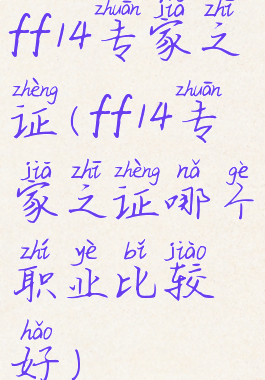 zhuān jiā zhī
ff14专家之
zhèng zhuān
证(ff14专
jiā zhī zhèng nǎ gè
家之证哪个
zhí yè bǐ jiào
职业比较
hǎo
好)